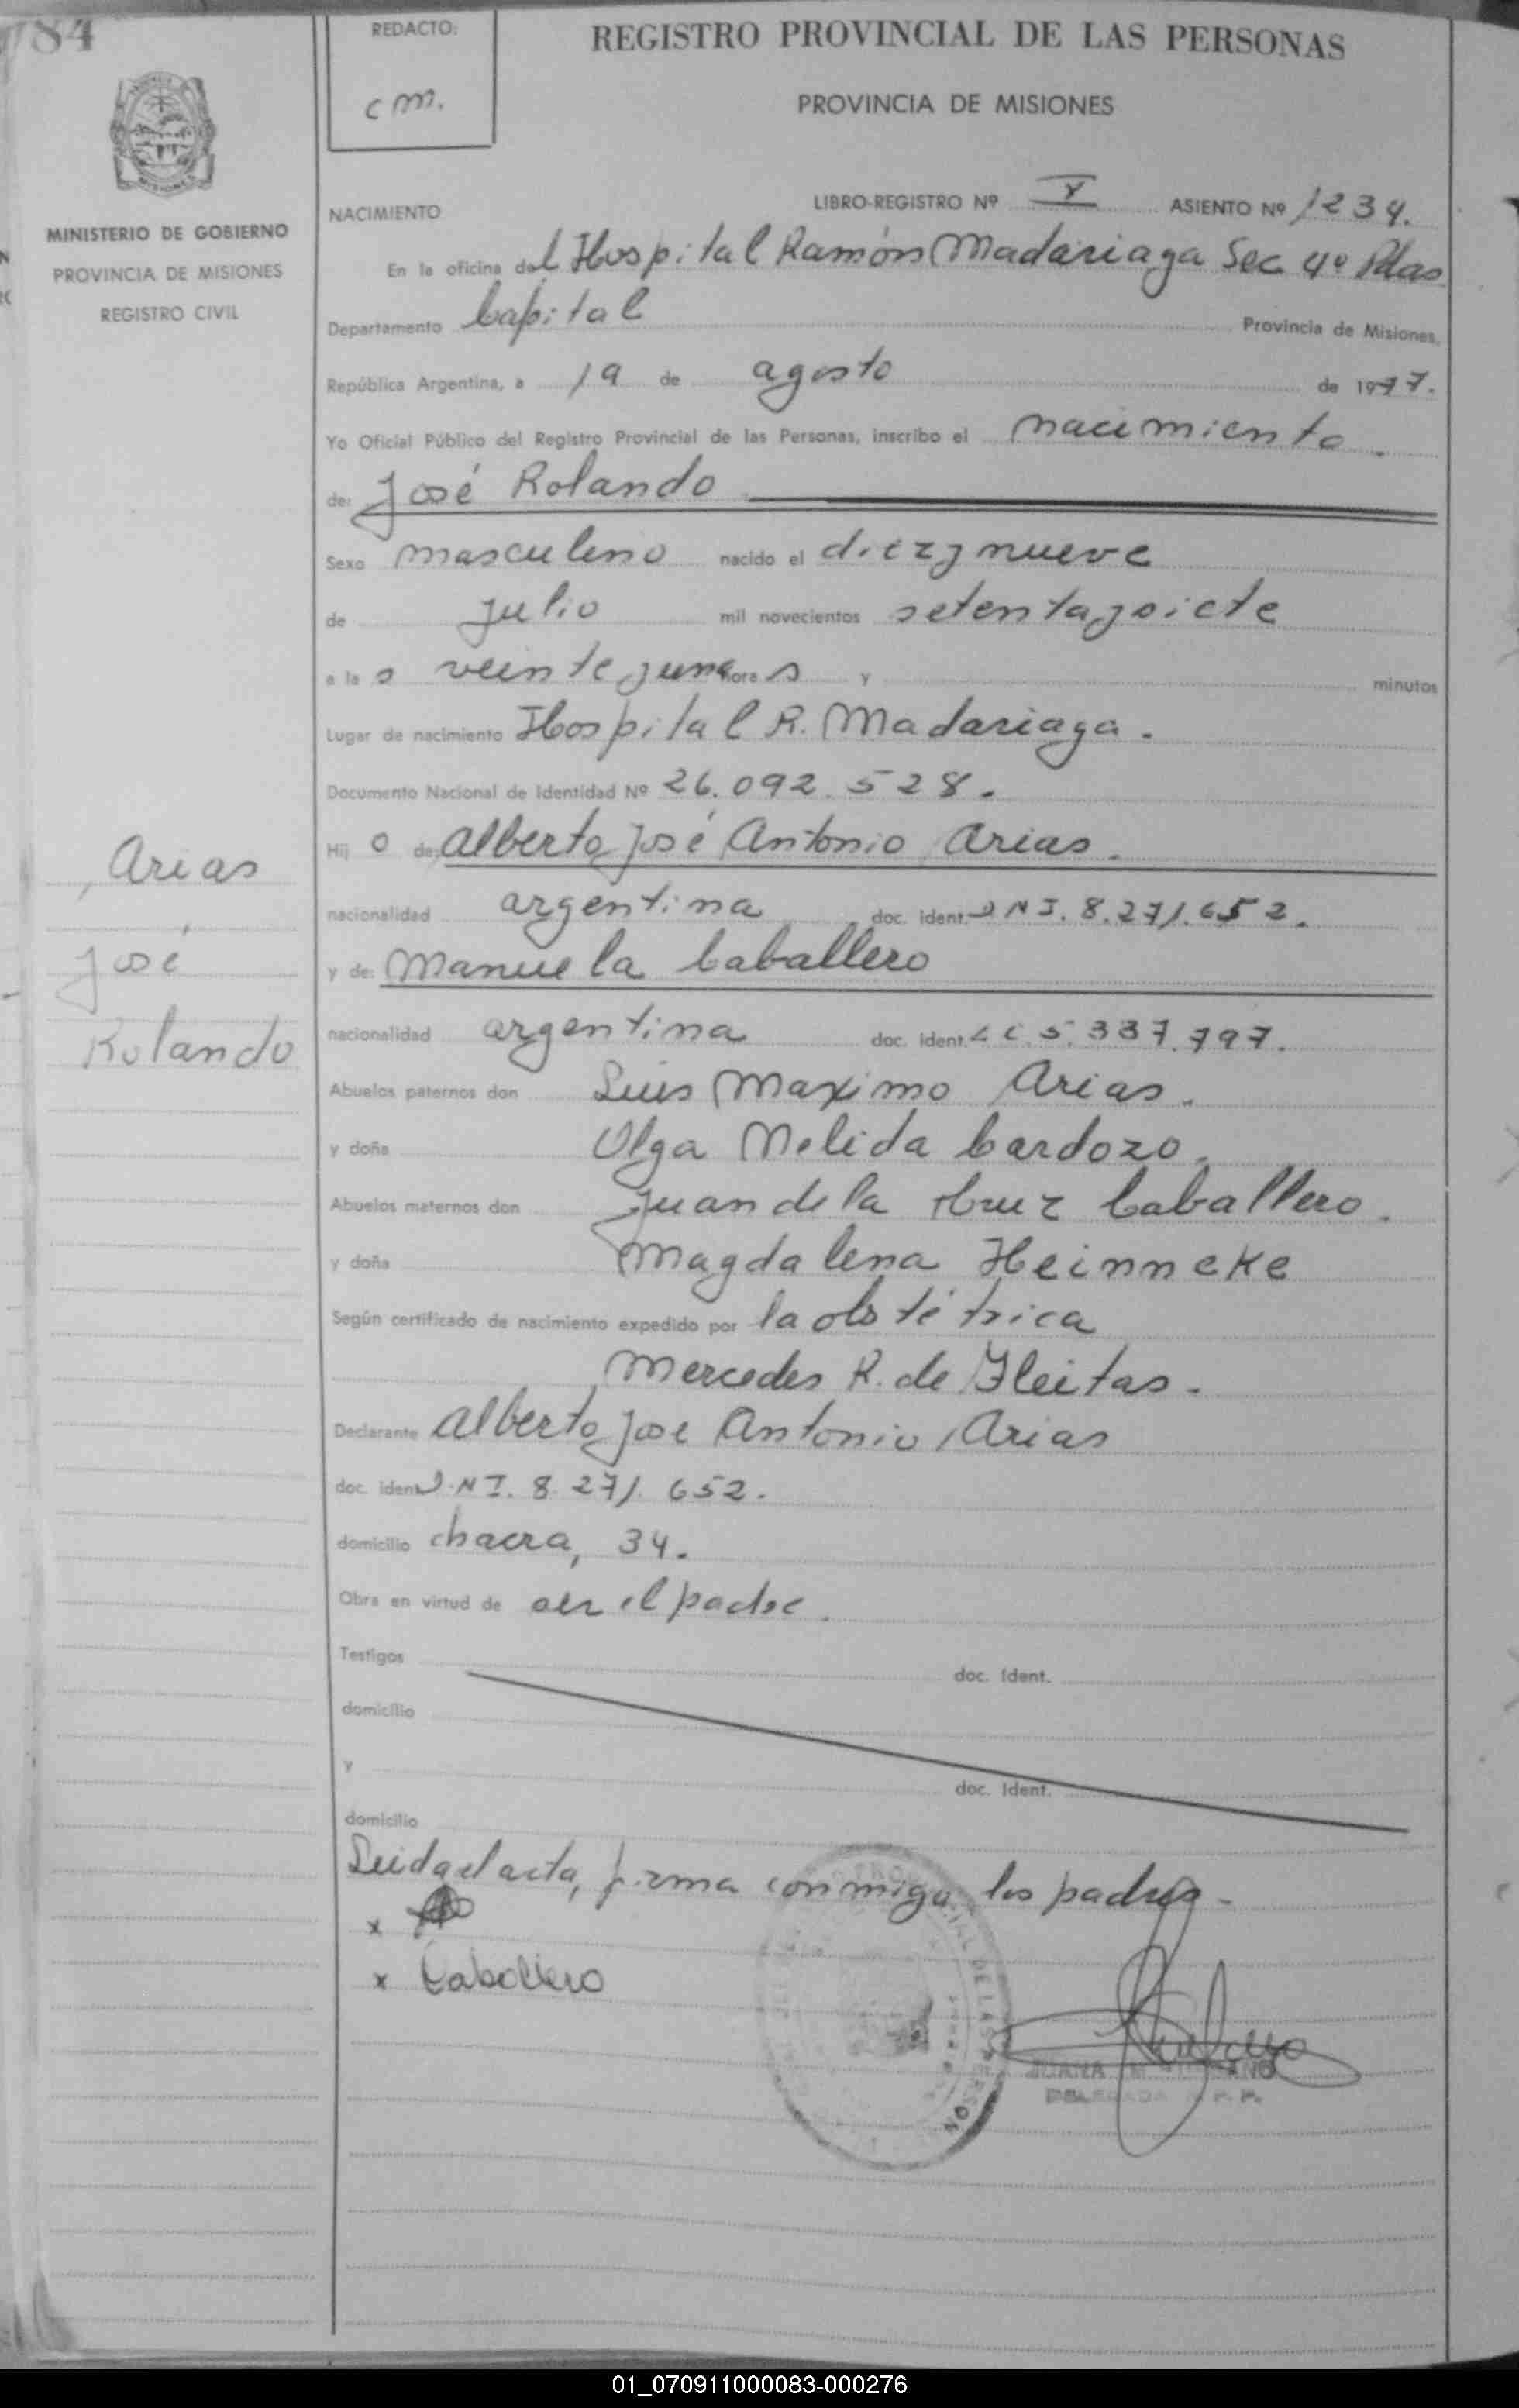 784
REDACTO:
cm.
REGISTRO PROVINCIAL DE LAS PERSONAS
PROVINCIA DE MISIONES
MINISTERIO DE GOBIERNO
PROVINCIA DE MISIONES
REGISTRO CIVIL
NACIMIENTO
LIBRO-REGISTRO Nº V ASIENTO Nº 1234.
En la oficina del Hospital Ramón Madariaga Sec 4º Pdas
Departamento Capital Provincia de Misiones,
República Argentina, a 19 de agosto de 1977.
Yo Oficial Público del Registro Provincial de las Personas, inscribo el nacimiento
de: José Rolando
Sexo masculino nacido el diezynueve
de julio mil novecientos setentaysiete
a la s veinteyuna hora s y minutos
Lugar de nacimiento Hospital R. Madariaga.
Documento Nacional de Identidad Nº 26.092.528.
Hij o de: Alberto José Antonio Arias.
nacionalidad argentina doc. Ident. DNI. 8.271.652.
y de: Manuela Caballero
nacionalidad argentina doc. Ident. LC 5.337.797.
Abuelos paternos don Luis Maximo Arias.
y doña Olga Melida Cardozo.
Abuelos maternos don Juan de la Cruz Caballero.
y doña Magdalena Heinneke
Según certificado de nacimiento expedido por la obstétrica
Mercedes R. de Fleitas.
Declarante Alberto Jose Antonio Arias
doc. ident D.NI. 8.271.652.
domicilio chacra, 34.
Obra en virtud de ser el padre.
Testigos doc. Ident.
domicilio
y doc. Ident.
domicilio
Leida el acta, firma conmigo los padres.
x
x Caballero
Arias
José
Rolando
JUANA M.
DELEGADA R. P. P.
01_070911000083-000276